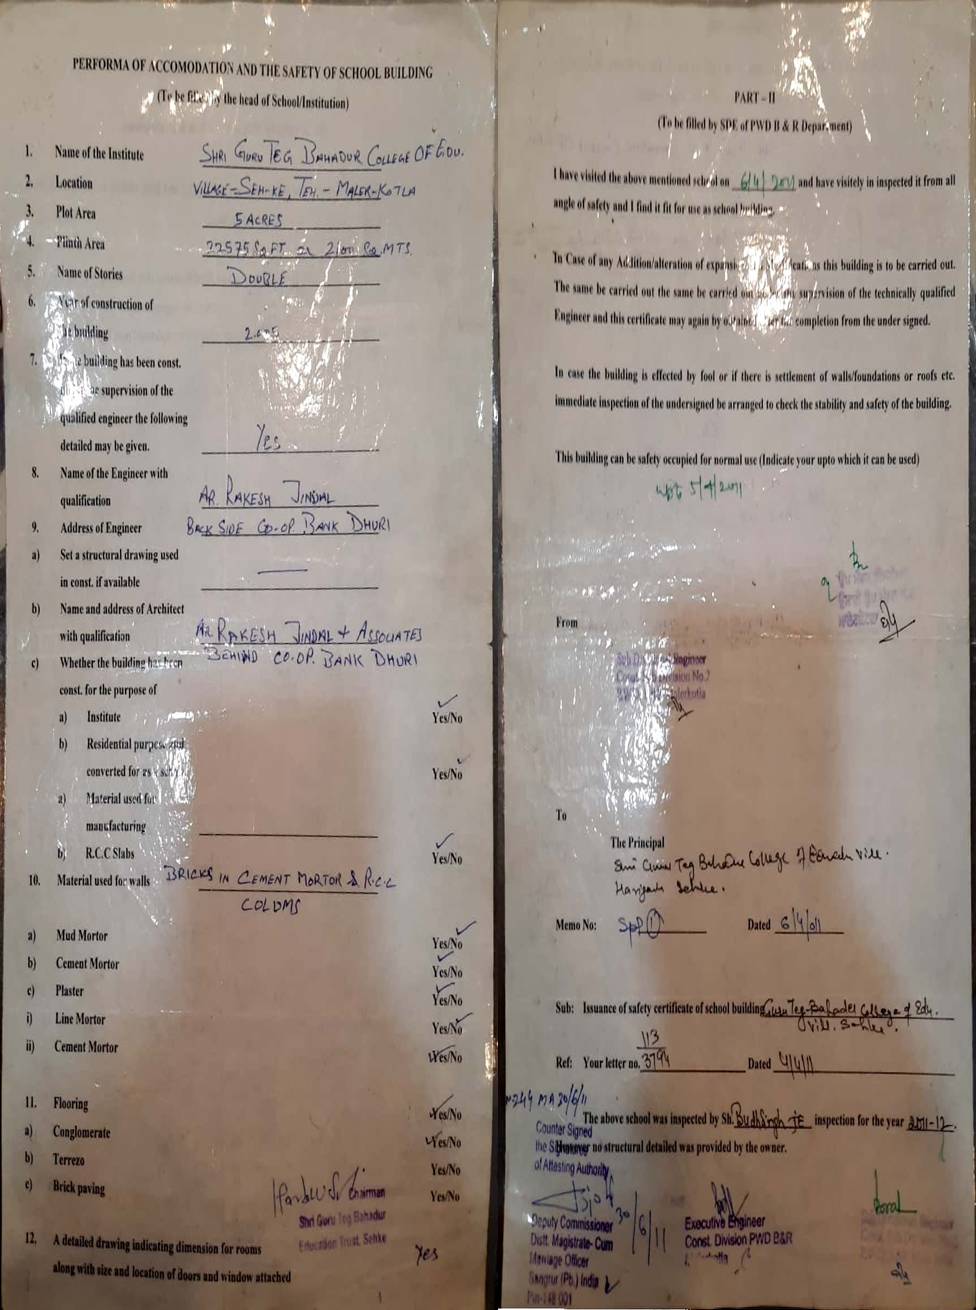 PERFORMA OF ACCOMODATION AND THE SAFETY OF SCHOOL BUILDING
(To be filled by the head of School/Institution)
1. Name of the Institute SHRI GURU TEG BAHADUR COLLEGE OF EDU.
2. Location VILLAGE-SEH-KE, TEH.- MALER-KOTLA
3. Plot Area 5 ACRES
4. Plinth Area 22575 SQ FT. or Sq. MTS.
5. Name of Stories DOUBLE
6. Year of construction of
the building
7. building has been const.
supervision of the
qualified engineer the following
detailed may be given. Yes
8. Name of the Engineer with
qualification AR. RAKESH JINDAL
9. Address of Engineer BACK SIDE CO-OP BANK DHURI
a) Set a structural drawing used
in const. if available
b) Name and address of Architect
with qualification AR. RAKESH JINDAL & ASSOCIATES
BEHIND CO-OP. BANK DHURI
c) Whether the building has been
const. for the purpose of
a) Institute Yes/No
b) Residential purpose and
converted for as Yes/No
a) Material used for
manufacturing
b) R.C.C Slabs Yes/No
10. Material used for walls BRICKS IN CEMENT MORTOR & R.C.C
COLOMS
a) Mud Mortor Yes/No
b) Cement Mortor Yes/No
c) Plaster Yes/No
i) Line Mortor Yes/No
ii) Cement Mortor Yes/No
11. Flooring Yes/No
a) Conglomerate Yes/No
b) Terrezo Yes/No
c) Brick paving Yes/No
Chairman
Shri Guru Teg Bahadur
Education Trust, Sehke
12. A detailed drawing indicating dimension for rooms
along with size and location of doors and window attached Yes
PART - II
(To be filled by SPE of PWD B & R Department)
I have visited the above mentioned school on 6/4/2011 and have visitely in inspected it from all
angle of safety and I find it fit for use as school building.
In Case of any Addition/alteration of this building is to be carried out.
The same be carried out the same be carried out supervision of the technically qualified
Engineer and this certificate may again by obtained after the completion from the under signed.
In case the building is effected by fool or if there is settlement of walls/foundations or roofs etc.
immediate inspection of the undersigned be arranged to check the stability and safety of the building.
This building can be safety occupied for normal use (Indicate your upto which it can be used)
From
Sub Divisional Engineer
Const. Sub Division No.2
Malerkotla
To
The Principal
Shri Guru Teg Bahadur College of Vill.
Sehke.
Memo No: Spl (1) Dated 6/4/011
Sub: Issuance of safety certificate of school building Guru Teg-Bahader College of Edu.
Vill. Sehke.
113
Ref: Your letter no. 3794 Dated 4/4/11
30/6/11
The above school was inspected by Sh. Budh Singh JE inspection for the year 2011-12.
However no structural detailed was provided by the owner.
Counter Signed
the Signature
of Attesting Authority
30/6/11
Deputy Commissioner
Distt. Magistrate- Cum
Marriage Officer
Sangrur (Pb.) India
Pin-148 001
Executive Engineer
Const. Division PWD B&R